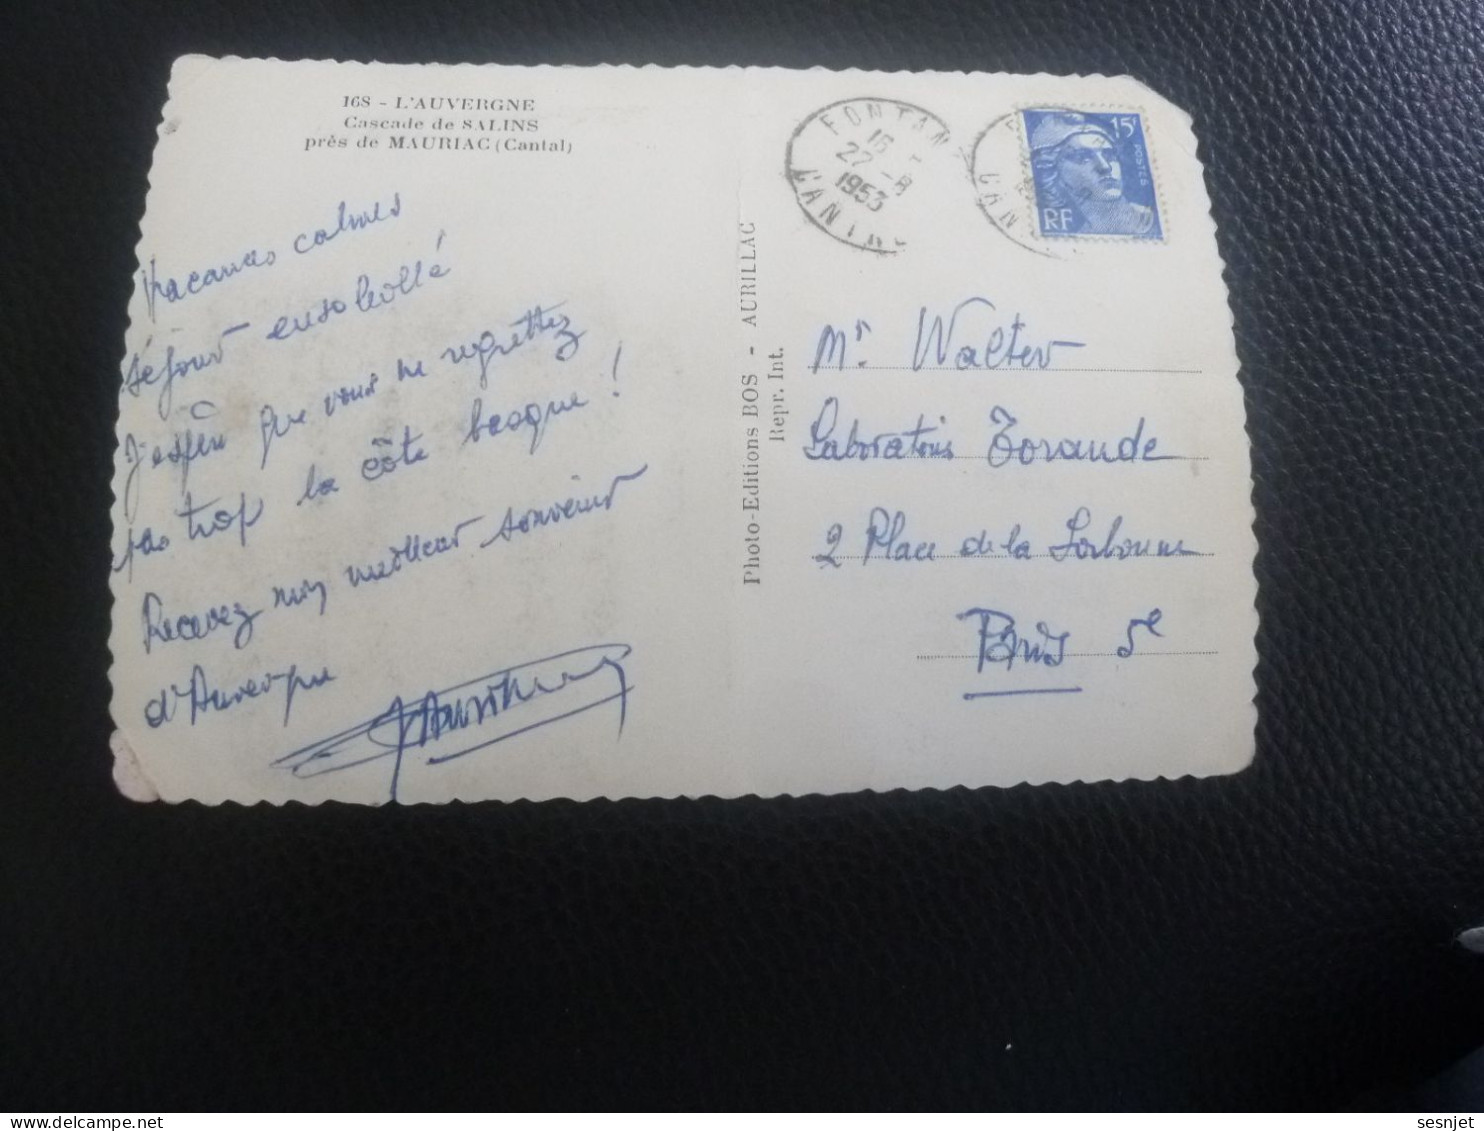 168 - L'AUVERGNE
Cascade de SALINS
près de MAURIAC (Cantal)
Vacances calmes
séjour ensoleillé
J'espère que vous ne regrettez
pas trop la côte basque !
Recevez mon meilleur souvenir
d'Auvergne
Photo-Editions BOS - AURILLAC
Repr. Int.
FONTAN
16
22 - 8
1953
CANTAL
15F
POSTES
RF
Mr Walter
Laboratoires Toraude
2 Place de la Sorbonne
Paris 5e
sesnjet